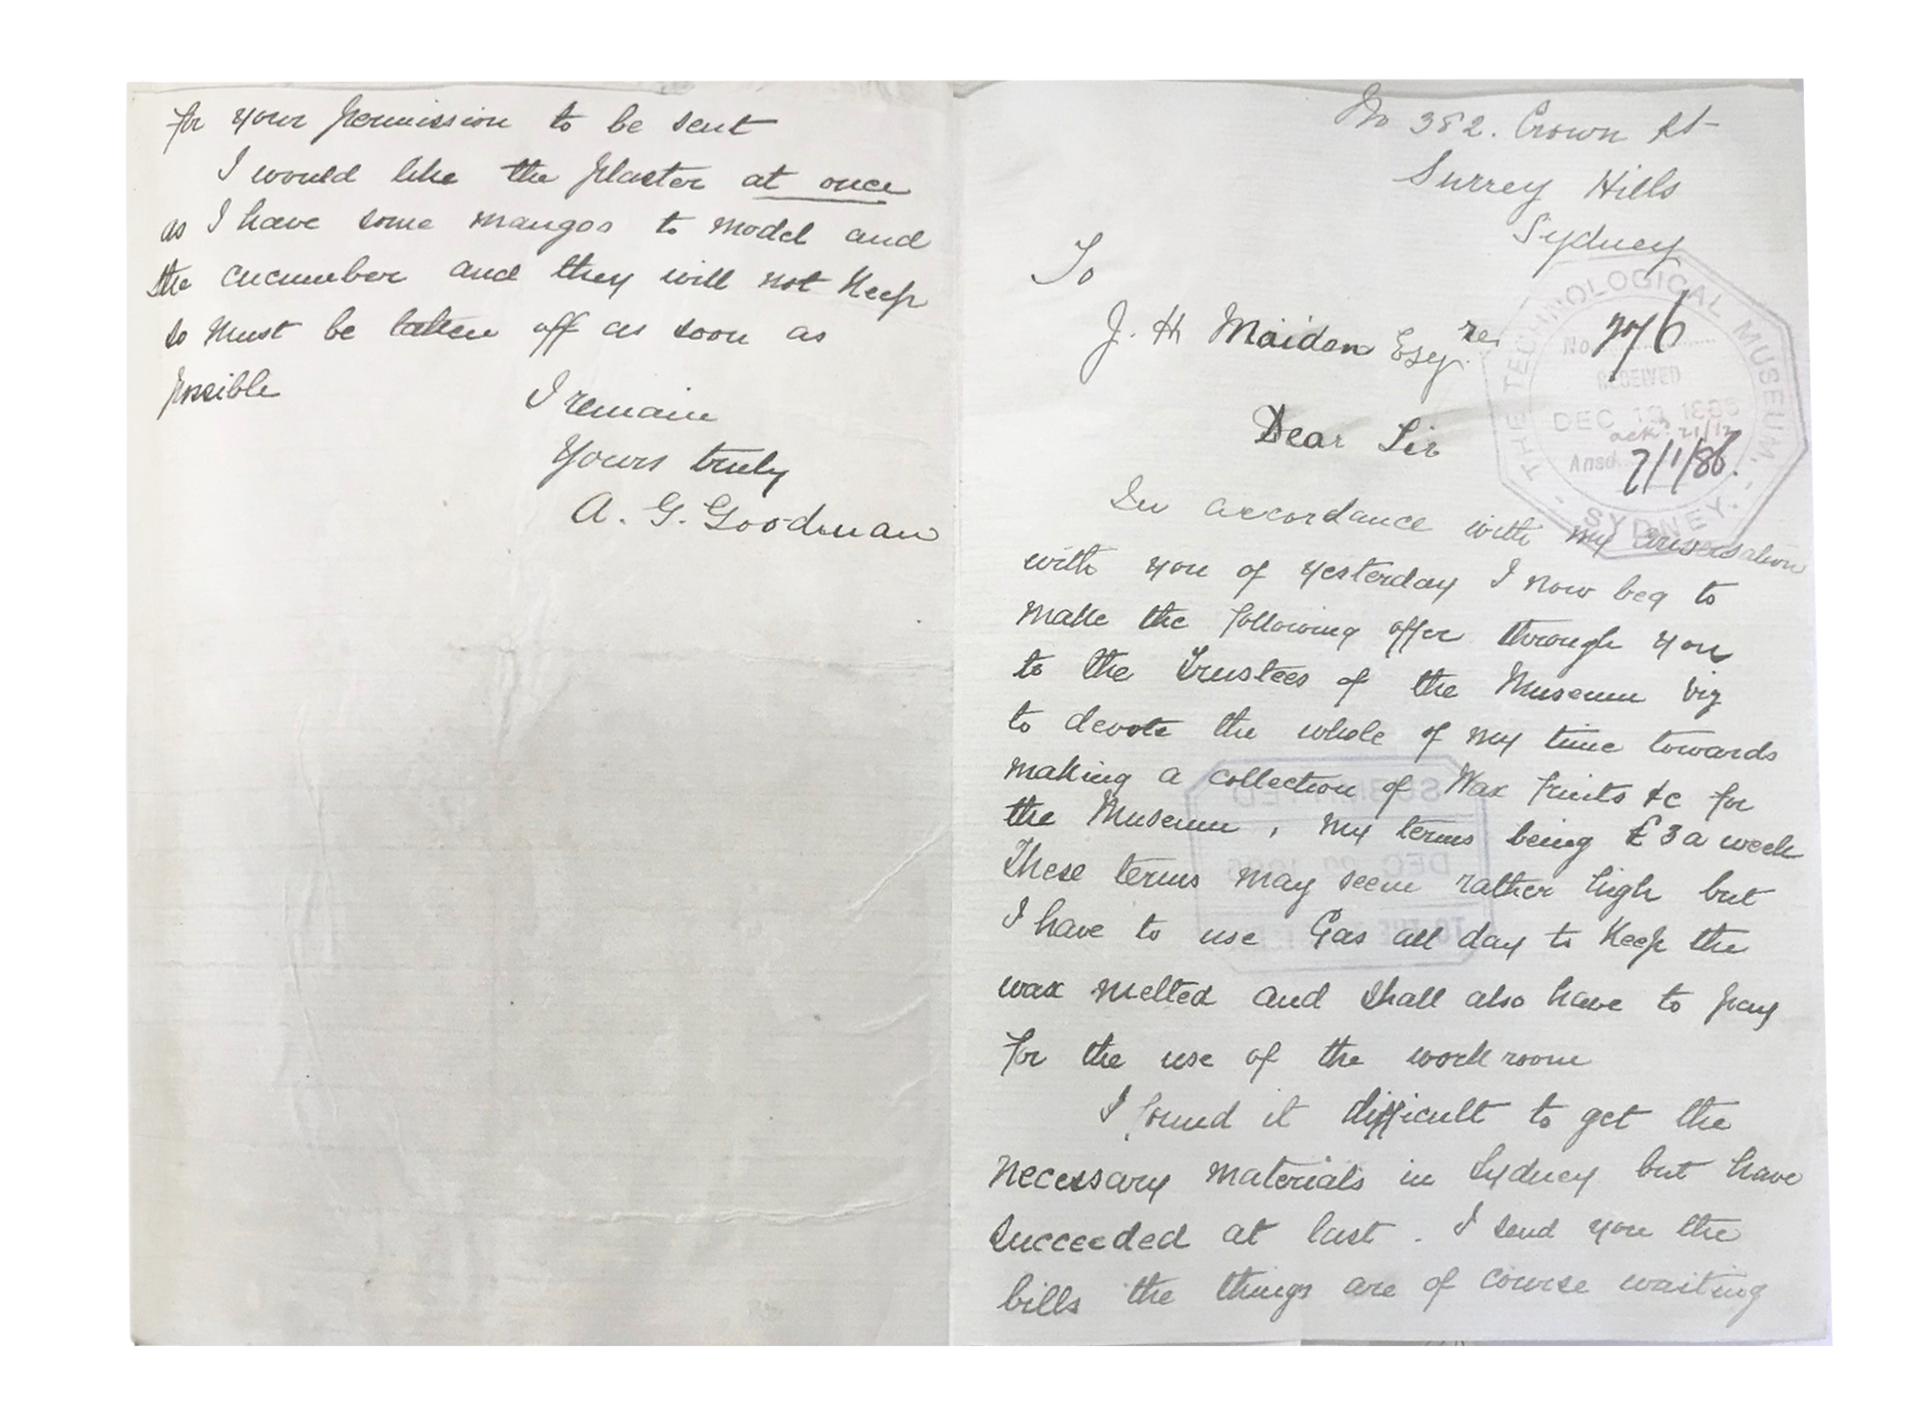 No 382. Crown St
Surrey Hills
Sydney
To
J. H Maiden Esqre
Dear Sir
THE TECHNOLOGICAL MUSEUM.
No.
RECEIVED
DEC 19 1885
ack. 21/12
Ansd. 7/1/86.
- SYDNEY. -
In accordance with my conversation
with you of yesterday I now beg to
make the following offer through you
to the Trustees of the Museum viz
to devote the whole of my time towards
making a collection of Wax fruits &c for
the Museum, my terms being £3 a week
These terms may seem rather high but
I have to use Gas all day to Keep the
wax melted and shall also have to pay
for the use of the work room
I found it difficult to get the
necessary materials in Sydney but have
succeeded at last. I send you the
bills the things are of course waiting
SUBMITTED
DEC 1885
TO THE
for your permission to be sent
I would like the plaster at once
as I have some mangos to model and
the cucumber and they will not Keep
so must be taken off as soon as
possible
I remain
Yours truly
A. G. Goodman